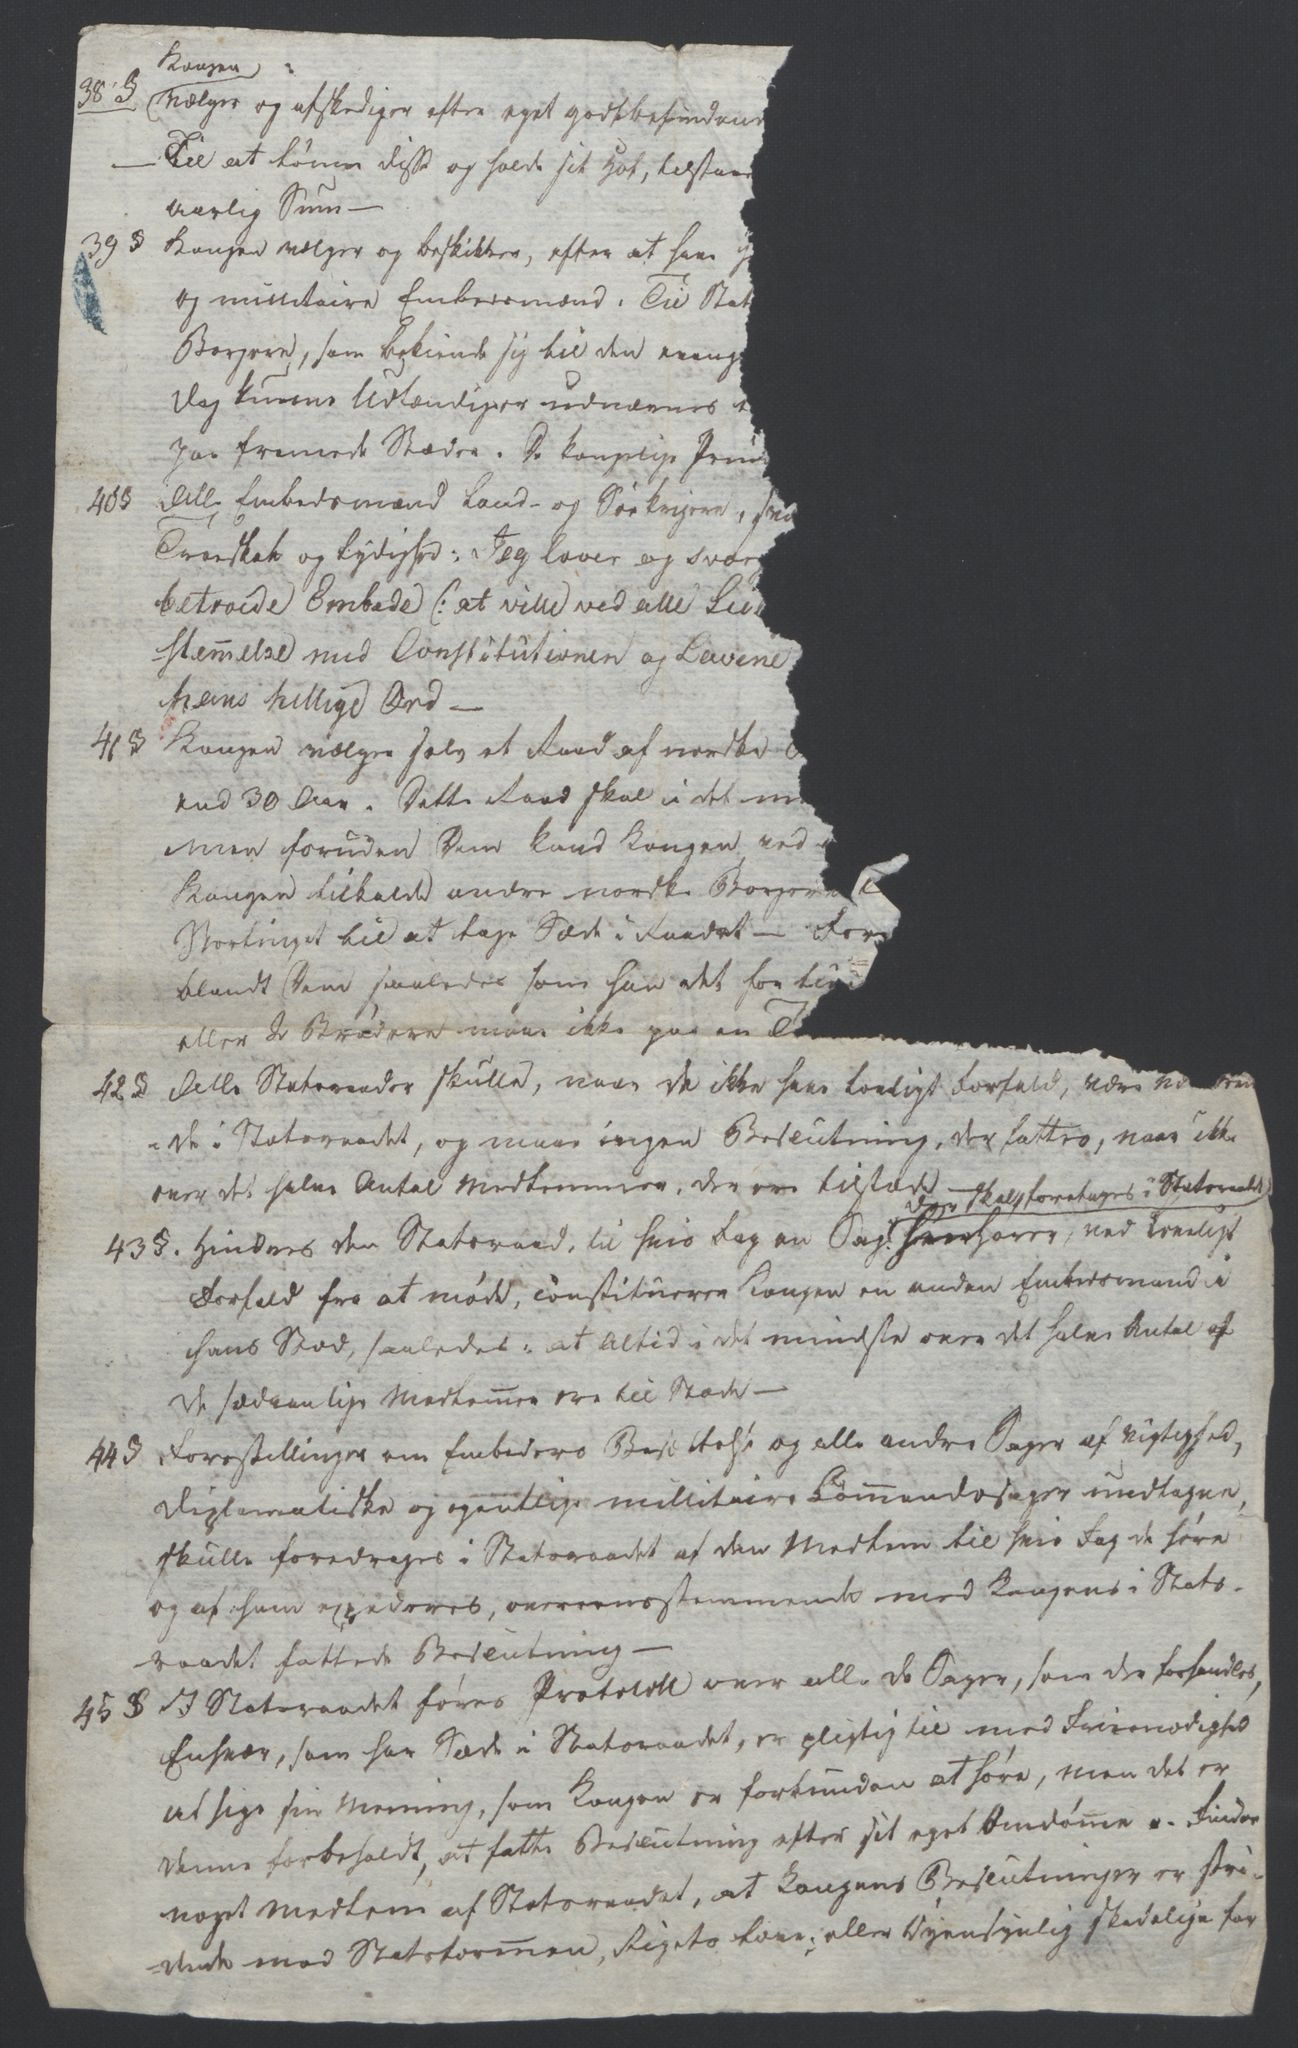 Kongen
38 § vælger og afskediger efter eget godtbefindend
Til at lönne disse og holde sit Hof, tilstaae
aarlig Sum —
39 § Kongen vælger og beskikker, efter at have
og millitaire Embedsmænd. Til Stat
Borgere, som bekiende sig til den evang
Dog kunne Udlændiger udnævnes
paa fremede Stæder. De kongelige Prin
40 § Alle Embedsmænd Land- og Söekrigere,
Troeskab og Lydighed: Jeg lover og svær
betroede Embede (: at ville ved alle Lei
stem̅else med Constitutionen og Lovene
hans hellige Ord —
41 § Kongen vælger selv et Raad af norske
end 30 Aar. Dette Raad skal i det m
men foruden Dem kand Kongen ved
Kongen tilkalde andre norske Borgere
Stortinget til at tage Sæde i Raadet — For
blandt Dem saaledes som han det for
eller 2 Brödre maae ikke paa en T
42 § Alle Statsraader skulle, naar de ikke have lovligt Forfald, være
de i Statsraadet, og maae ingen Beslutning, der fattes, naar ikke
over det halve Antal Medlemmer, der ere tilstæde
der skal foretages i Statsraadet
43 §. Hindres den Statsraad, til hvis Fag en Sag henhörer, ved lovligt
Forfald fra at möde, constituerer Kongen en anden Embedsmand i
hans Stæd, saaledes: at altid i det mindste over det halve Antal af
de sædvanlige Medlem̅er ere til Stæde —
44 § Forestillinger om Embeders Besættelse og alle andre Sager af Vigtighed,
diplomatiske og egentlige millitaire Com̅andosager undtagne,
skulle foredrages i Statsraadet af den Medlem til hvis Fag de höre
og af ham expederes, overeensstemmende med Kongens i Stats-
raadet fattede Beslutning —
45 § I Statsraadet föres Protokoll over alle de Sager, som der forhandles,
Enhver, som har Sæde i Statsraadet, er pligtig til med Friemodighed
at sige sin Mening, som Kongen er forbunden at höre, men det er
denne forbeholdt, at fatte Beslutning efter sit eget Omdöm̅e. Finder
noget Medlem af Statsraadet, at Kongens Beslutninger er stri-
dende mod Statsform̅en, Rigets Love, eller Öyensynlig skadelige for